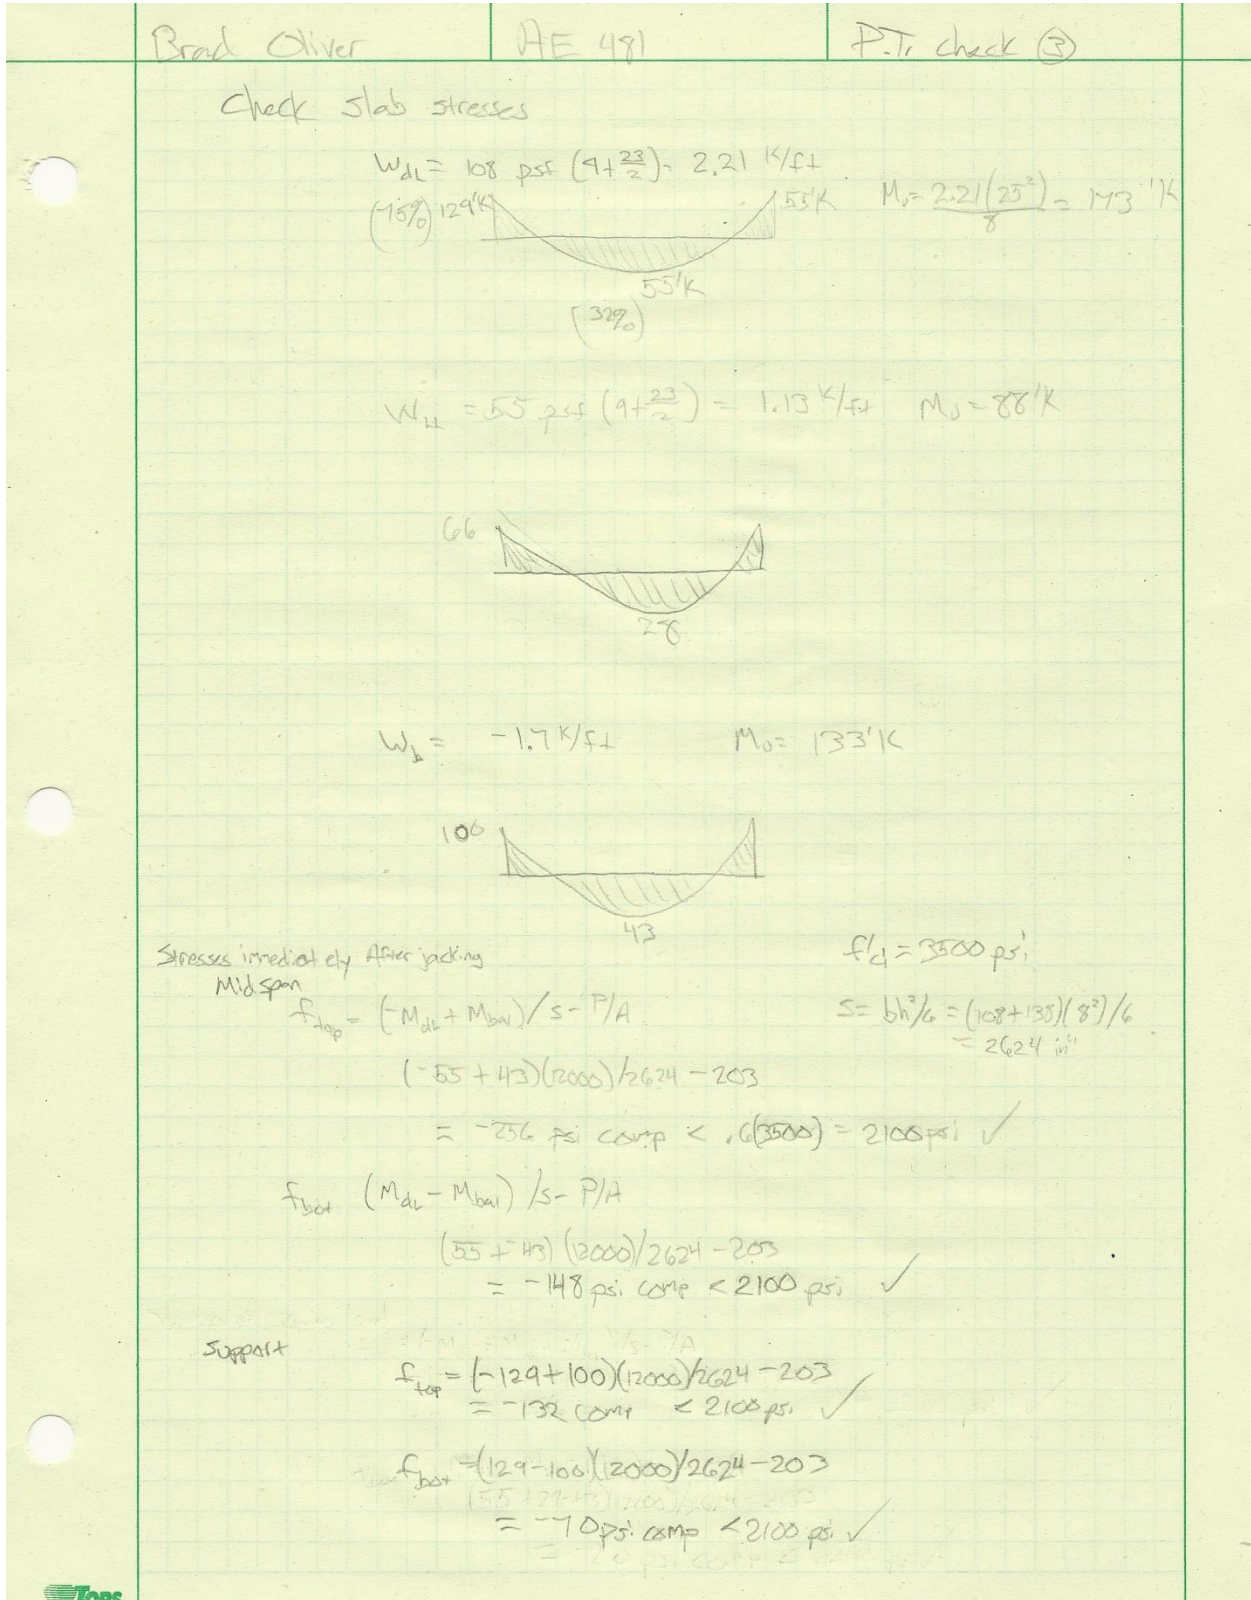 Brad Oliver AE 481 P.T. check ③
Check slab stresses
W_DL = 108 psf (9+23/2) = 2.21 K/ft
(75%) 129'K 55'K M₀ = 2.21(25²)/8 = 173 'K
55'K
(32%)
W_LL = 55 psf (9+23/2) = 1.13 K/ft M₀ = 88'K
66
28
W_b = -1.7 K/ft M₀ = 133'K
100
43
Stresses immediately After jacking f'ci = 3500 psi
Midspan
f_top = (-M_DL + M_bal)/s - P/A S = bh²/6 = (108+138)(8²)/6
= 2624 in³
(-55 + 43)(12000)/2624 - 203
= -256 psi comp < .6(3500) = 2100 psi ✓
f_bot (M_DL - M_bal)/s - P/A
(55 + -43)(12000)/2624 - 203
= -148 psi comp < 2100 psi ✓
Support
f_top = (-129+100)(12000)/2624 - 203
= -132 comp < 2100 psi ✓
f_bot = (129-100)(12000)/2624 - 203
= -70 psi comp < 2100 psi ✓
TOPS